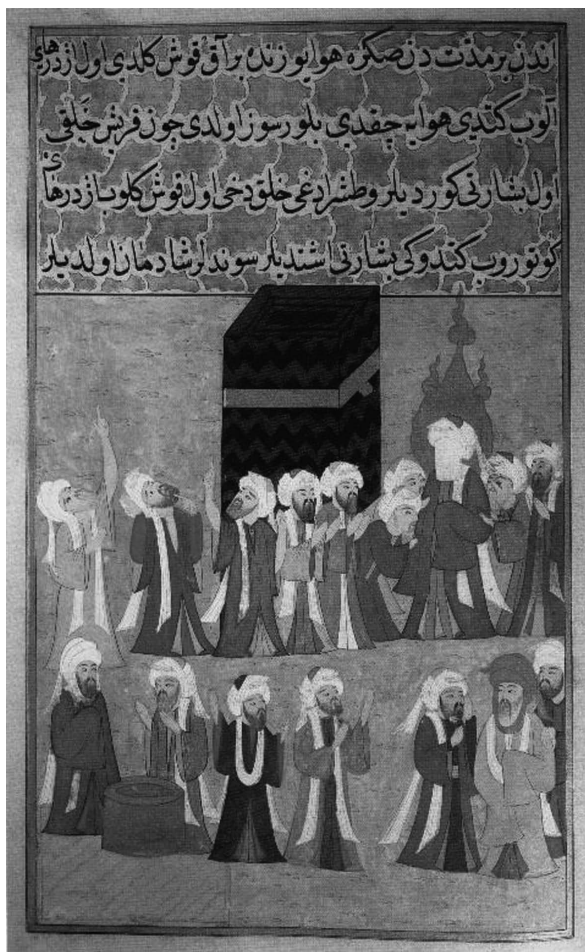 اندن بر مدت دن صكره هوا يوزندن بر آق قوش كلدى اول اژدرهاى
آلوب كتدى هوايه چقدى بلورسوز اولدى چون قريش خلقى
اول بشارتى كورديلر و طشرادغى خلق دخى اول قوش كلوب اژدرهاى
كوتوروب كتدوكى بشارتى اشتديلر سونديلر شادمان اولديلر